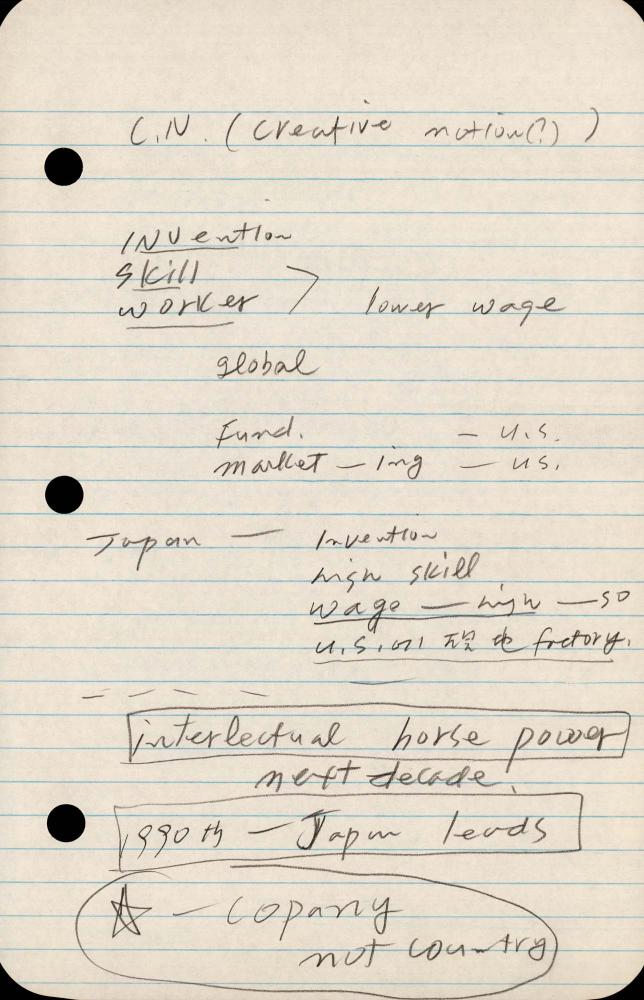 C.N. (Creative notion(?))
INVention
skill
worker > lower wage
global
Fund. — U.S.
market — ing — US.
Japan — Invention
high skill
wage — high — so
U.S.에 factory.
interlectual horse power
next decade.
1990th — Japan leads
☆ — Copany
not country